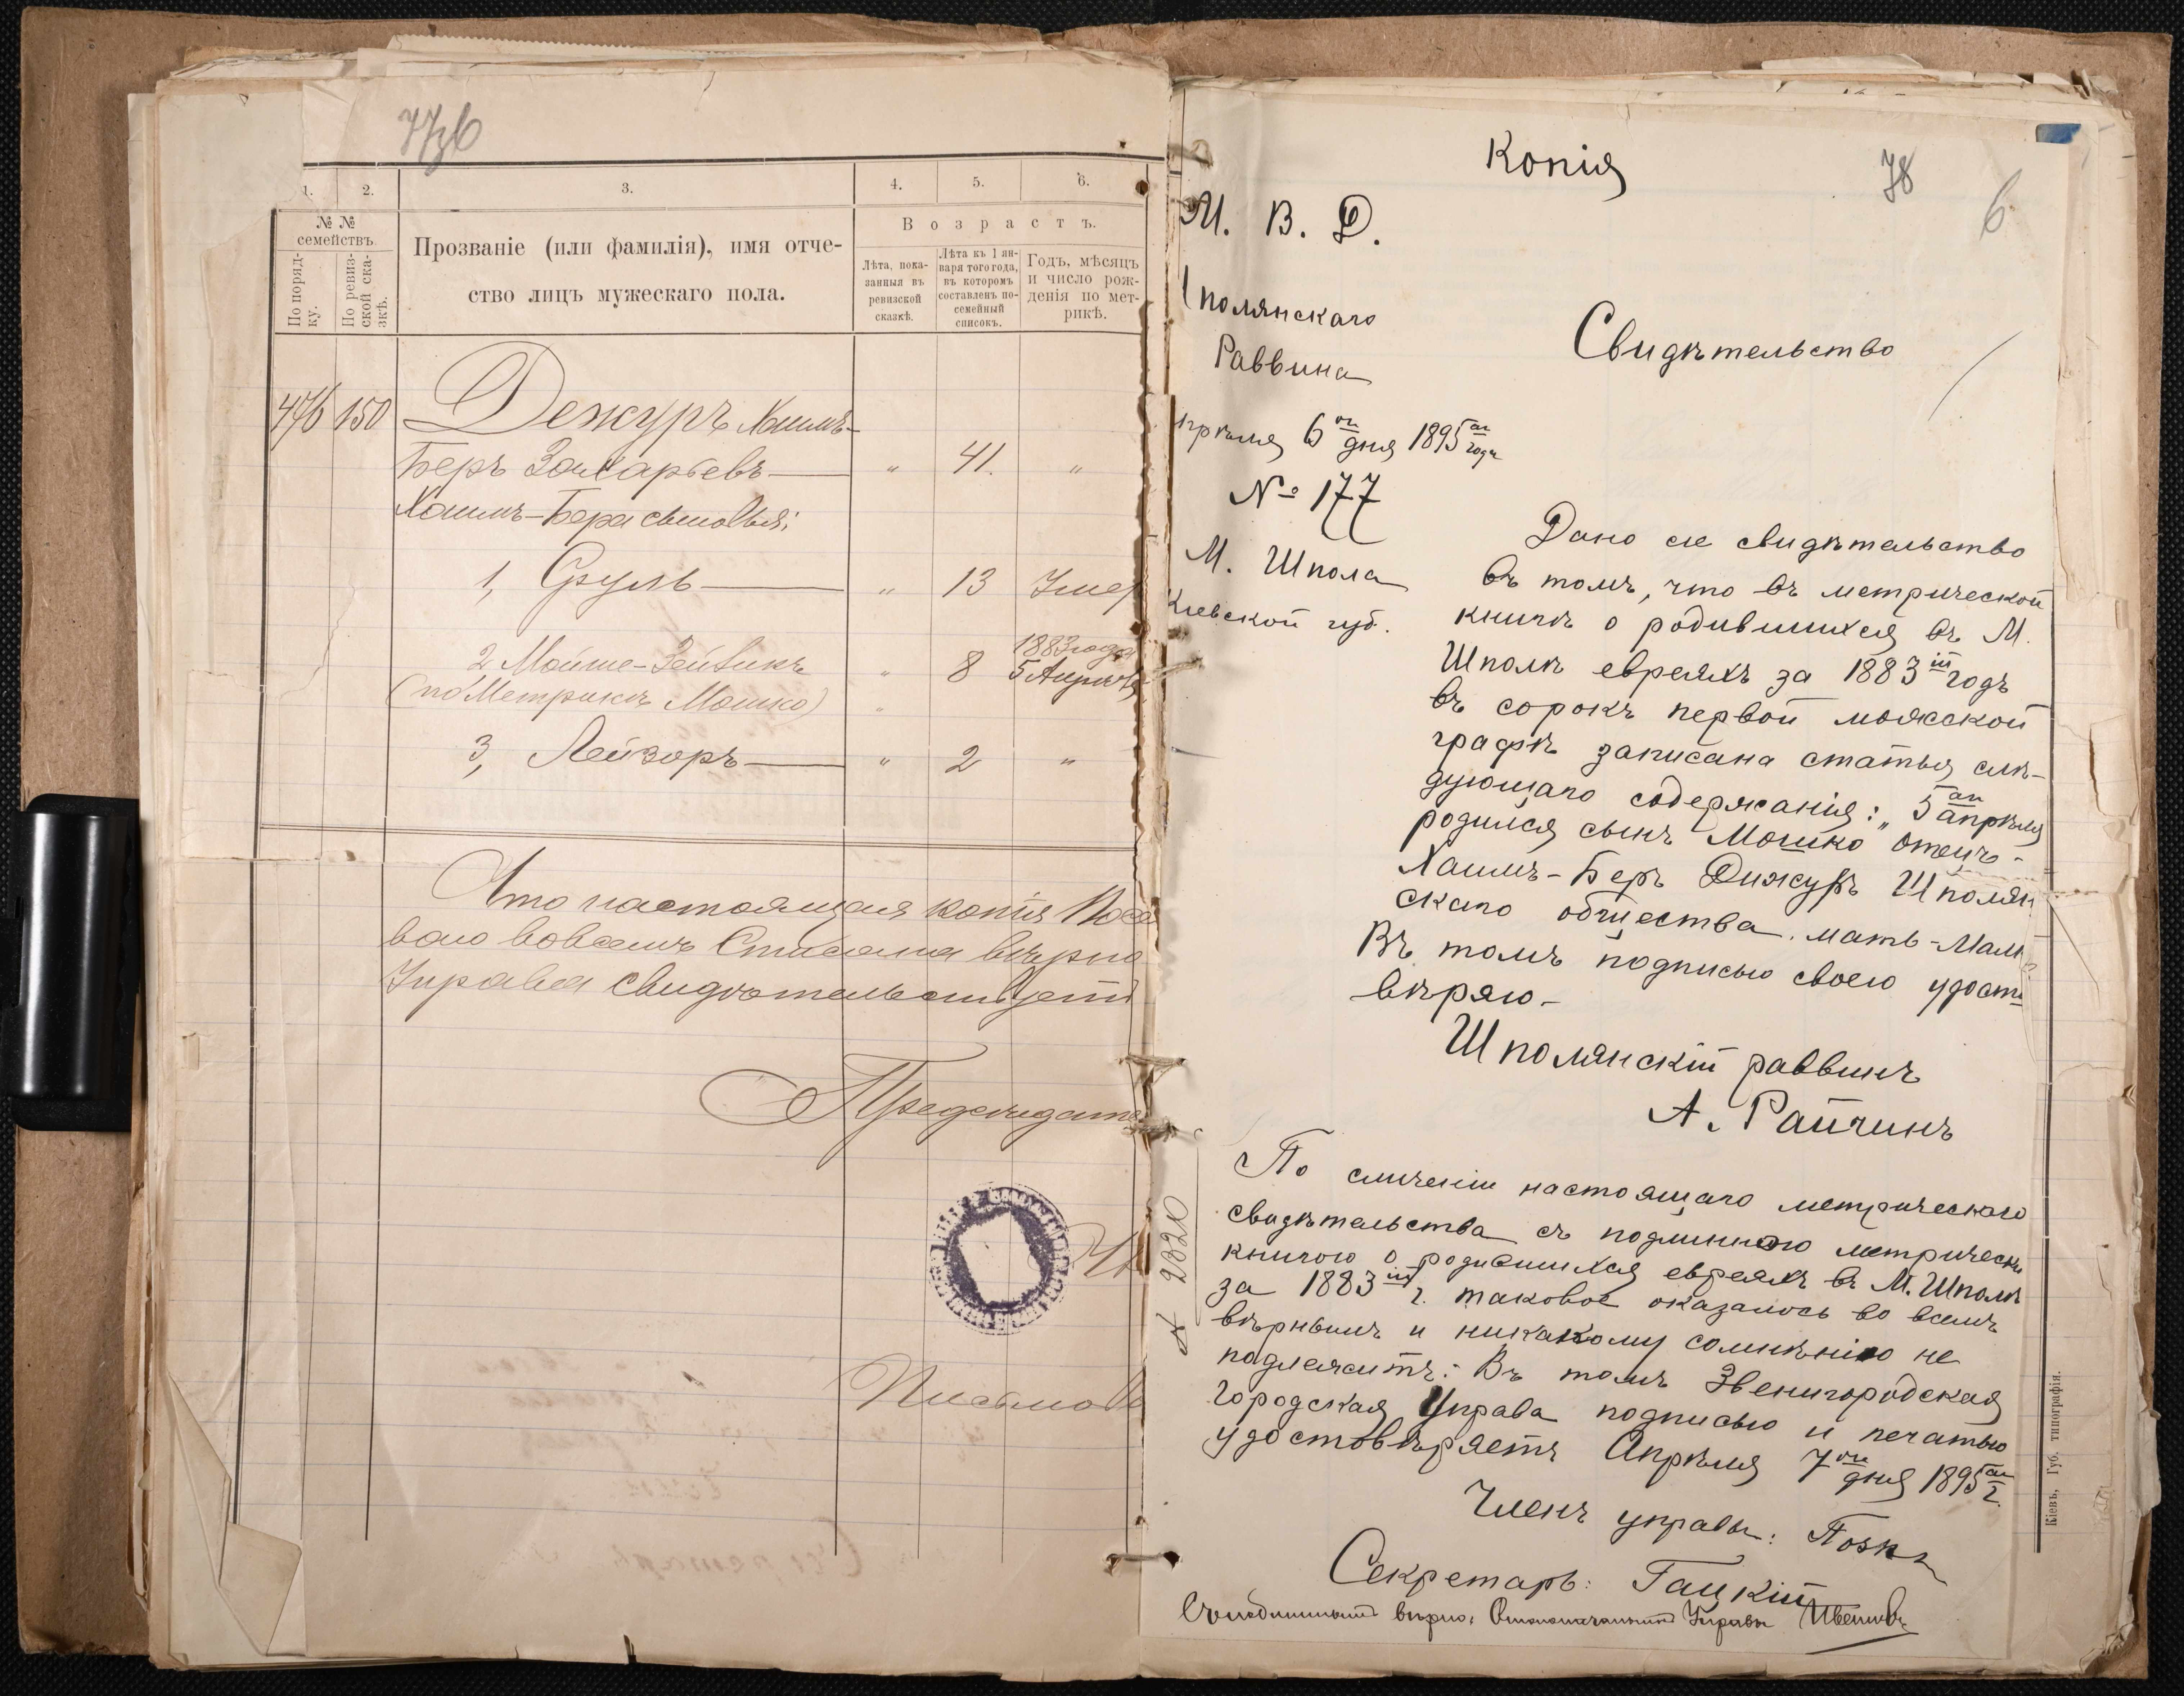 77об
1. 2. 3. 4. 5. 6.
№ №
семействъ.
По поряд-
ку.
По ревиз-
ской ска-
зкѣ.
Прозваніе (или фамилія), имя отче-
ство лицъ мужескаго пола.
Возрастъ.
Лѣта, пока-
занныя въ
ревизской
сказкѣ.
Лѣта къ 1 ян-
варя того года,
въ которомъ
составленъ по-
семейный
списокъ.
Годъ, мѣсяцъ
и число рож-
денія по мет-
рикѣ.
476 150 Дежуръ Хаимъ-
Беръ Захарьевъ " 41. "
Хаимъ-Бера сыновья:
1, Сруль " 13 Умер
1883 года
2, Мойше-Зейвикъ " 8 5 Апрѣля
(по Метрикѣ Мошко) "
3, Лейзоръ " 2 "
Что настоящая копія Посе
вовсемъ Списана вѣрно
Управа свидѣтельствуетъ
Предсѣдате
Чл
Письмово
Копія
78
6
М. В. Д.
Шполянскаго
Раввина
Свидѣтельство
прѣля 6го дня 1895го года
№ 177
М. Шпола
Кіевской губ.
Дано сіе свидѣтельство
въ томъ, что въ метрической
книгѣ о родившихся въ М.
Шполѣ евреяхъ за 1883й годъ
въ сорокъ первой мужской
графѣ записана статья слѣ-
дующаго содержанія: „5го апрѣля
родился сынъ Мошко отецъ-
Хаимъ-Беръ Дижуръ Шполян
скаго общества, мать-Мал
Въ томъ подписью своею удосто
вѣряю-
Шполянскій раввинъ
А. Райчинъ
По сличеніи настоящаго метрическаго
свидѣтельства съ подлинною метрическ
книгою о родившихся евреяхъ въ М. Шполѣ
за 1883й г. таковое оказалось во всемъ
вѣрнымъ и никакому сомнѣнію не
подлежитъ: Въ томъ Звенигородская
Городская Управа подписью и печатью
удостовѣряетъ Апрѣля 7го дня 1895го г.
№ 2820
Членъ управы:
Секретарь: Гацкій
Съ подлиннымъ вѣрно: Столоначальникъ Управы
Кіевъ, Губ. типографія.